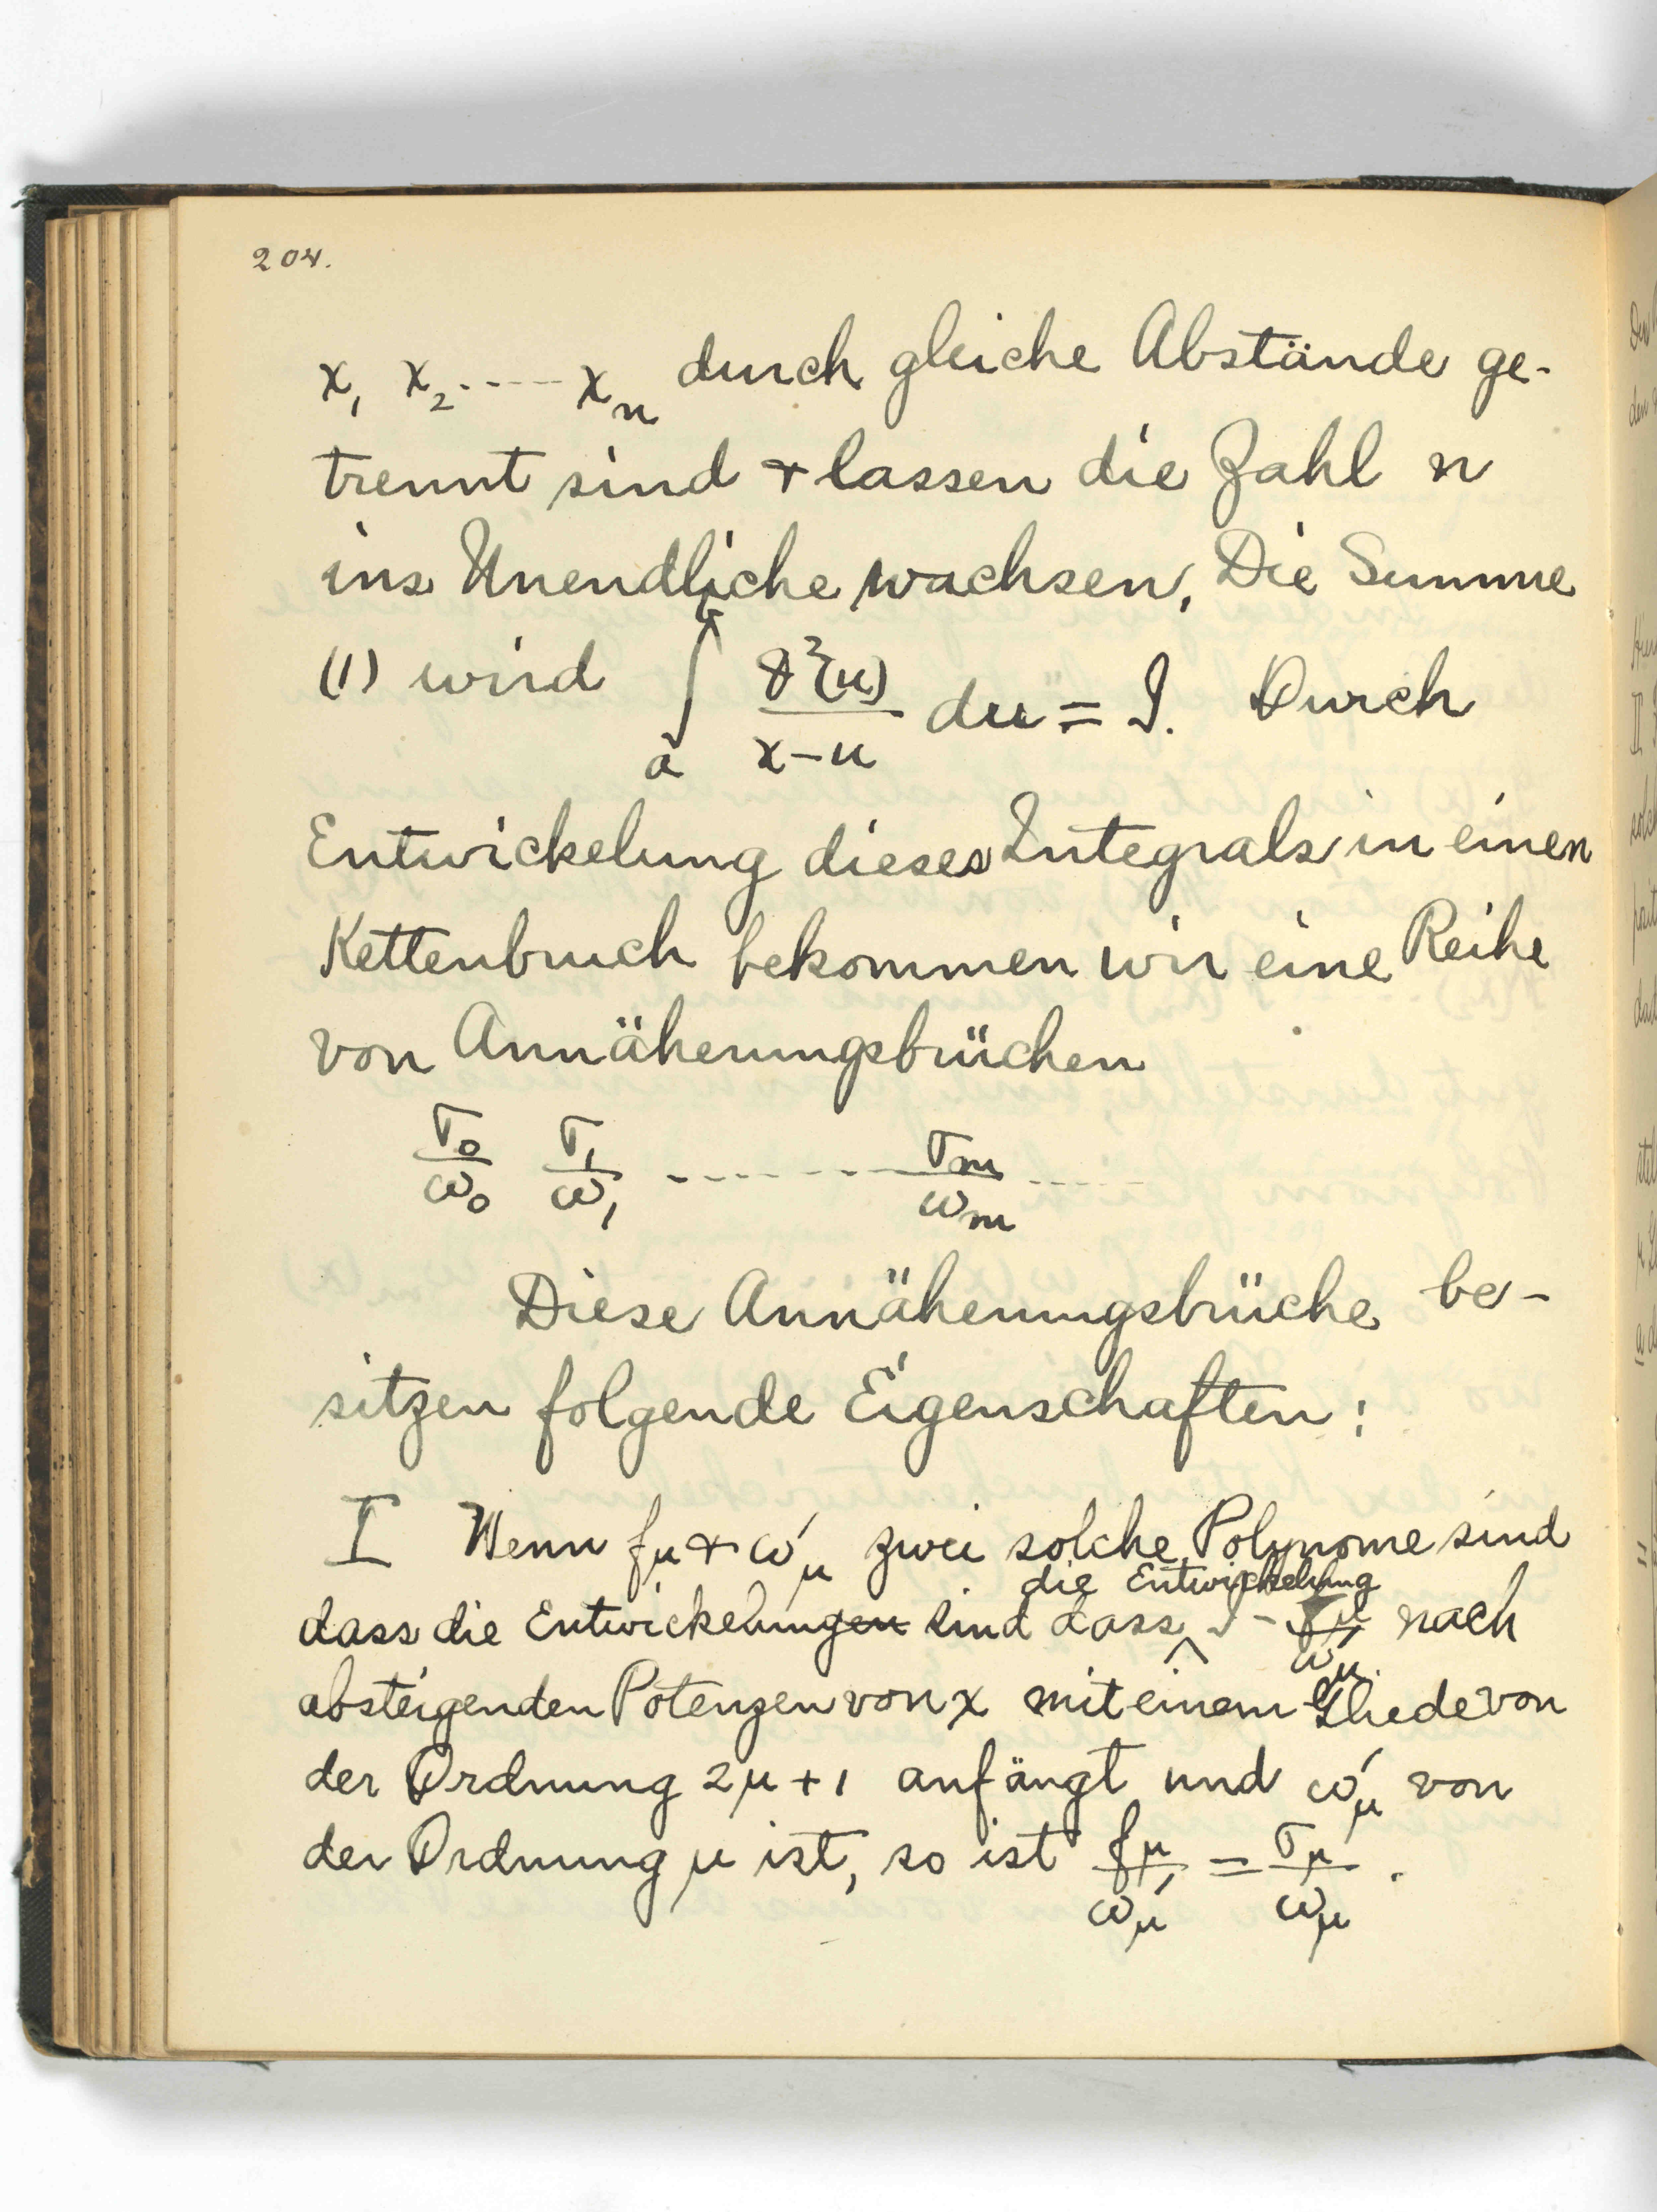 204.
x₁ x₂ ----- xₙ durch gleiche Abstände ge-
trennt sind + lassen die Zahl n
ins Unendliche wachsen, Die Summe
(1) wird ∫ₐᵇ ϑ²(u)/(x-u) du = J. Durch
Entwickelung dieses Integrals in einen
Kettenbruch bekommen wir eine Reihe
von Annäherungsbrüchen
σ₀/ω₀ σ₁/ω₁ --------- σₘ/ωₘ -----
Diese Annäherungsbrüche be-
sitzen folgende Eigenschaften:
I Wenn fμ + ω'μ zwei solche Polynome sind
die Entwickelung
dass die Entwickelungen sind dass J - fμ/ω'μ nach
absteigenden Potenzen von x mit einem Gliede von
der Ordnung 2μ+1 anfängt und ω'μ von
der Ordnung μ ist, so ist fμ/ω'μ = σμ/ωμ.